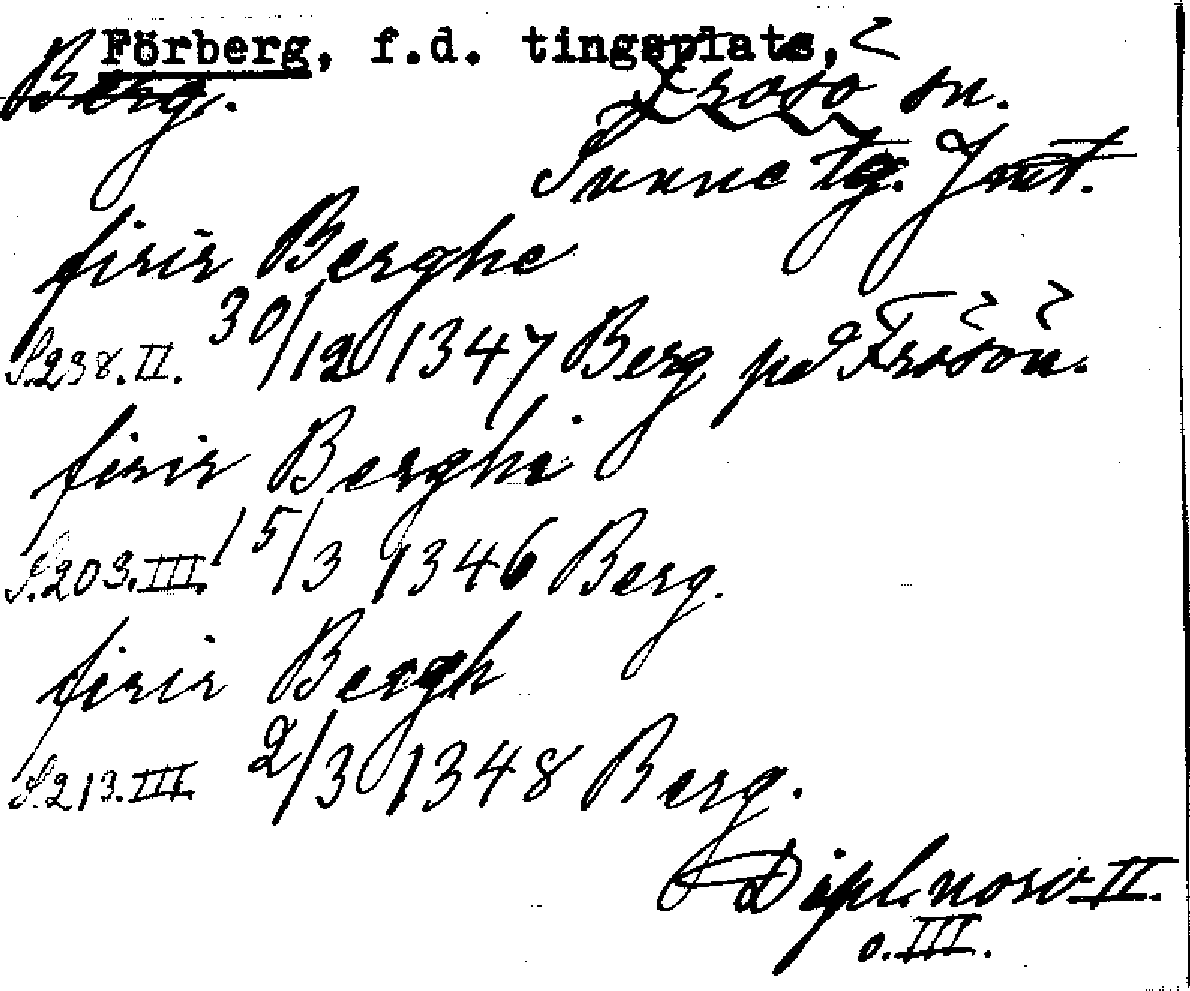 Förberg, f.d. tingsplats,
Berg. Frösö sn.
Sunne tg. Jmt.
firir Berghe
S.238.II. 30/12 1347 Berg på Frösön.
firir Berghi
S.203.III. 15/3 1346 Berg.
firir Bergh
S.213.III. 2/3 1348 Berg.
Dipl. norv. II.
o. III.